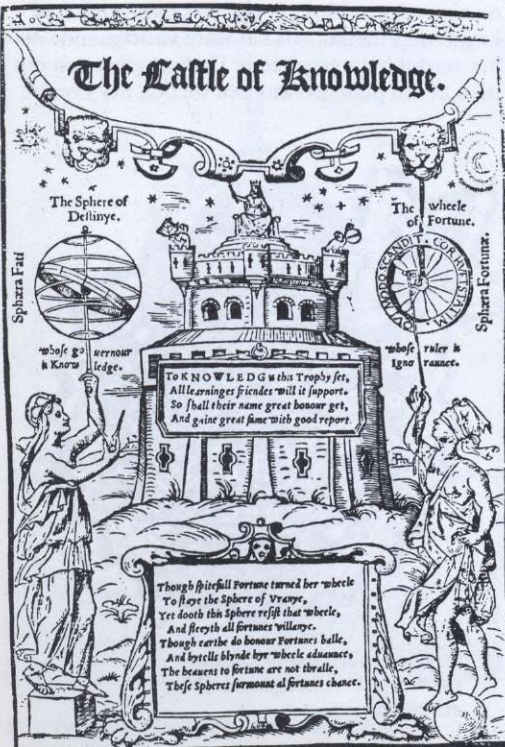 The Castle of Knowledge.
The Sphere of
Destinye.
Sphæra Fati
whose gouernour
is Knowledge.
The wheele
of Fortune.
Sphæra Fortunæ.
QVI MODO SCANDIT CORRVET STATIM
whose ruler is
Ignoraunce.
To KNOWLEDG is this Trophy set,
All learninges friendes will it support.
So shall their name great honour get,
And gaine great fame with good report.
Though spitefull Fortune turned her wheele
To staye the Sphere of Vranye,
Yet dooth this Sphere resist that wheele,
And fleeyth all fortunes villanye.
Though earthe do honour Fortunes balle,
And bytells blynde hyr wheele aduaunce,
The heauens to fortune are not thralle,
These Spheres surmount al fortunes chance.